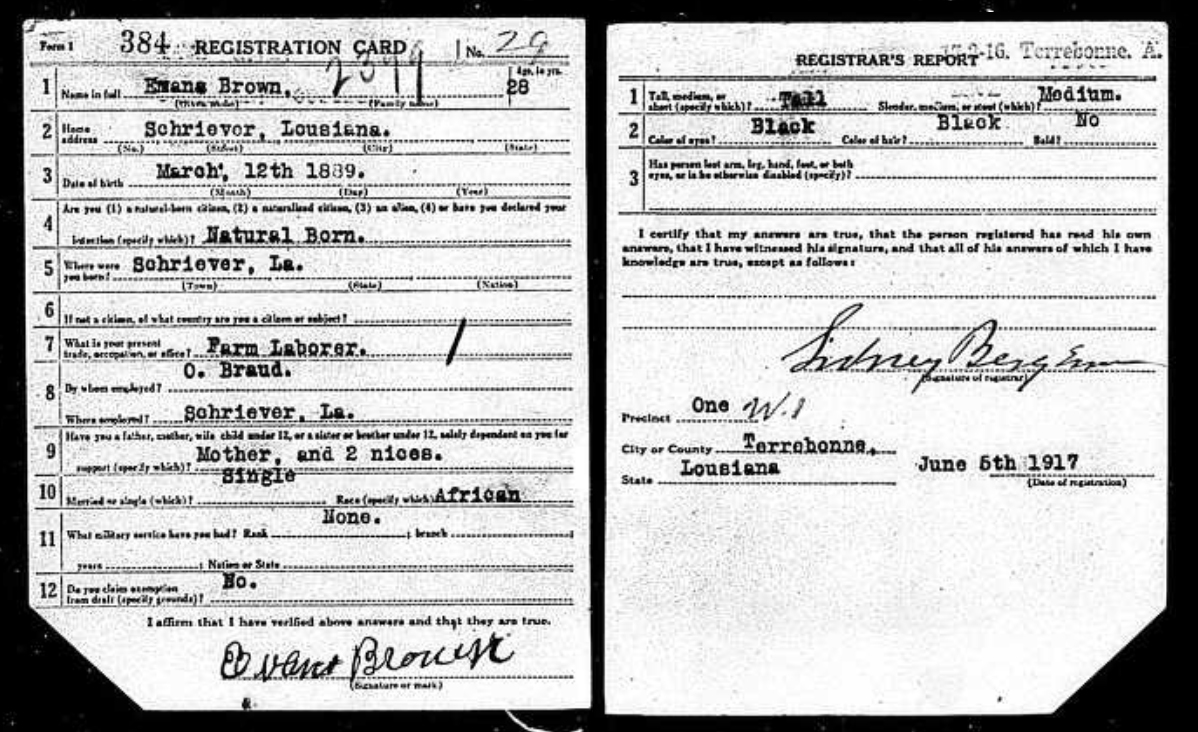 Form 1 384 REGISTRATION CARD No. 29
2399
1 Name in full Emans Brown. Age, in yrs. 28
(Given name) (Family name)
2 Home address Schriever, Lousiana.
(No.) (Street) (City) (State)
3 Date of birth March, 12th 1889.
(Month) (Day) (Year)
4 Are you (1) a natural-born citizen, (2) a naturalized citizen, (3) an alien, (4) or have you declared your
intention (specify which)? Natural Born.
5 Where were you born? Schriever, La.
(Town) (State) (Nation)
6 If not a citizen, of what country are you a citizen or subject?
7 What is your present trade, occupation, or office? Farm Laborer.
8 By whom employed? O. Braud.
Where employed? Schriever, La.
9 Have you a father, mother, wife child under 12, or a sister or brother under 12, solely dependent on you for
support (specify which)? Mother, and 2 nices.
10 Married or single (which)? Single Race (specify which) African
11 What military service have you had? Rank None. ; branch
years ; Nation or State
12 Do you claim exemption from draft (specify grounds)? No.
I affirm that I have verified above answers and that they are true.
Evans Brown
(Signature or mark)
REGISTRAR'S REPORT 17-2-16. Terrebonne. A.
1 Tall, medium, or short (specify which)? Tall Slender, medium, or stout (which)? Medium.
2 Color of eyes? Black Color of hair? Black Bald? No
3 Has person lost arm, leg, hand, foot, or both
eyes, or is he otherwise disabled (specify)?
I certify that my answers are true, that the person registered has read his own
answers, that I have witnessed his signature, and that all of his answers of which I have
knowledge are true, except as follows:
Sidney Berg
(Signature of registrar)
Precinct One W.1
City or County Terrebonne.
State Lousiana June 5th 1917
(Date of registration)